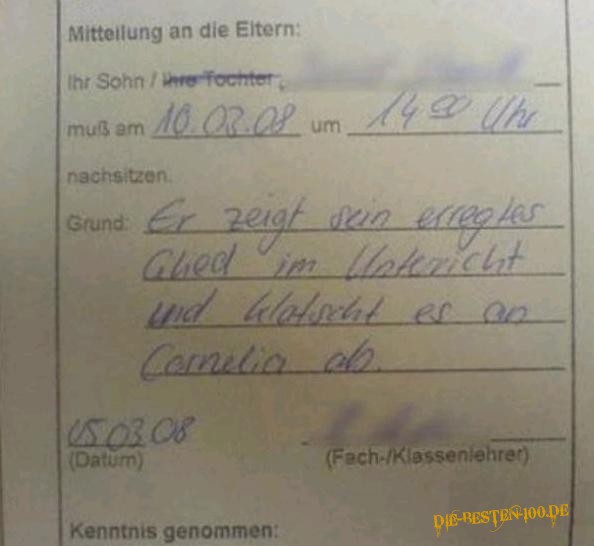 Mitteilung an die Eltern:
Ihr Sohn / Ihre Tochter,
muß am 10.03.08 um 14 00 Uhr
nachsitzen.
Grund: Er zeigt sein erregtes
Glied im Unterricht
und klatscht es an
Cornelia ab.
05.03.08
(Datum) (Fach-/Klassenlehrer)
DIE-BESTEN-100.DE
Kenntnis genommen: